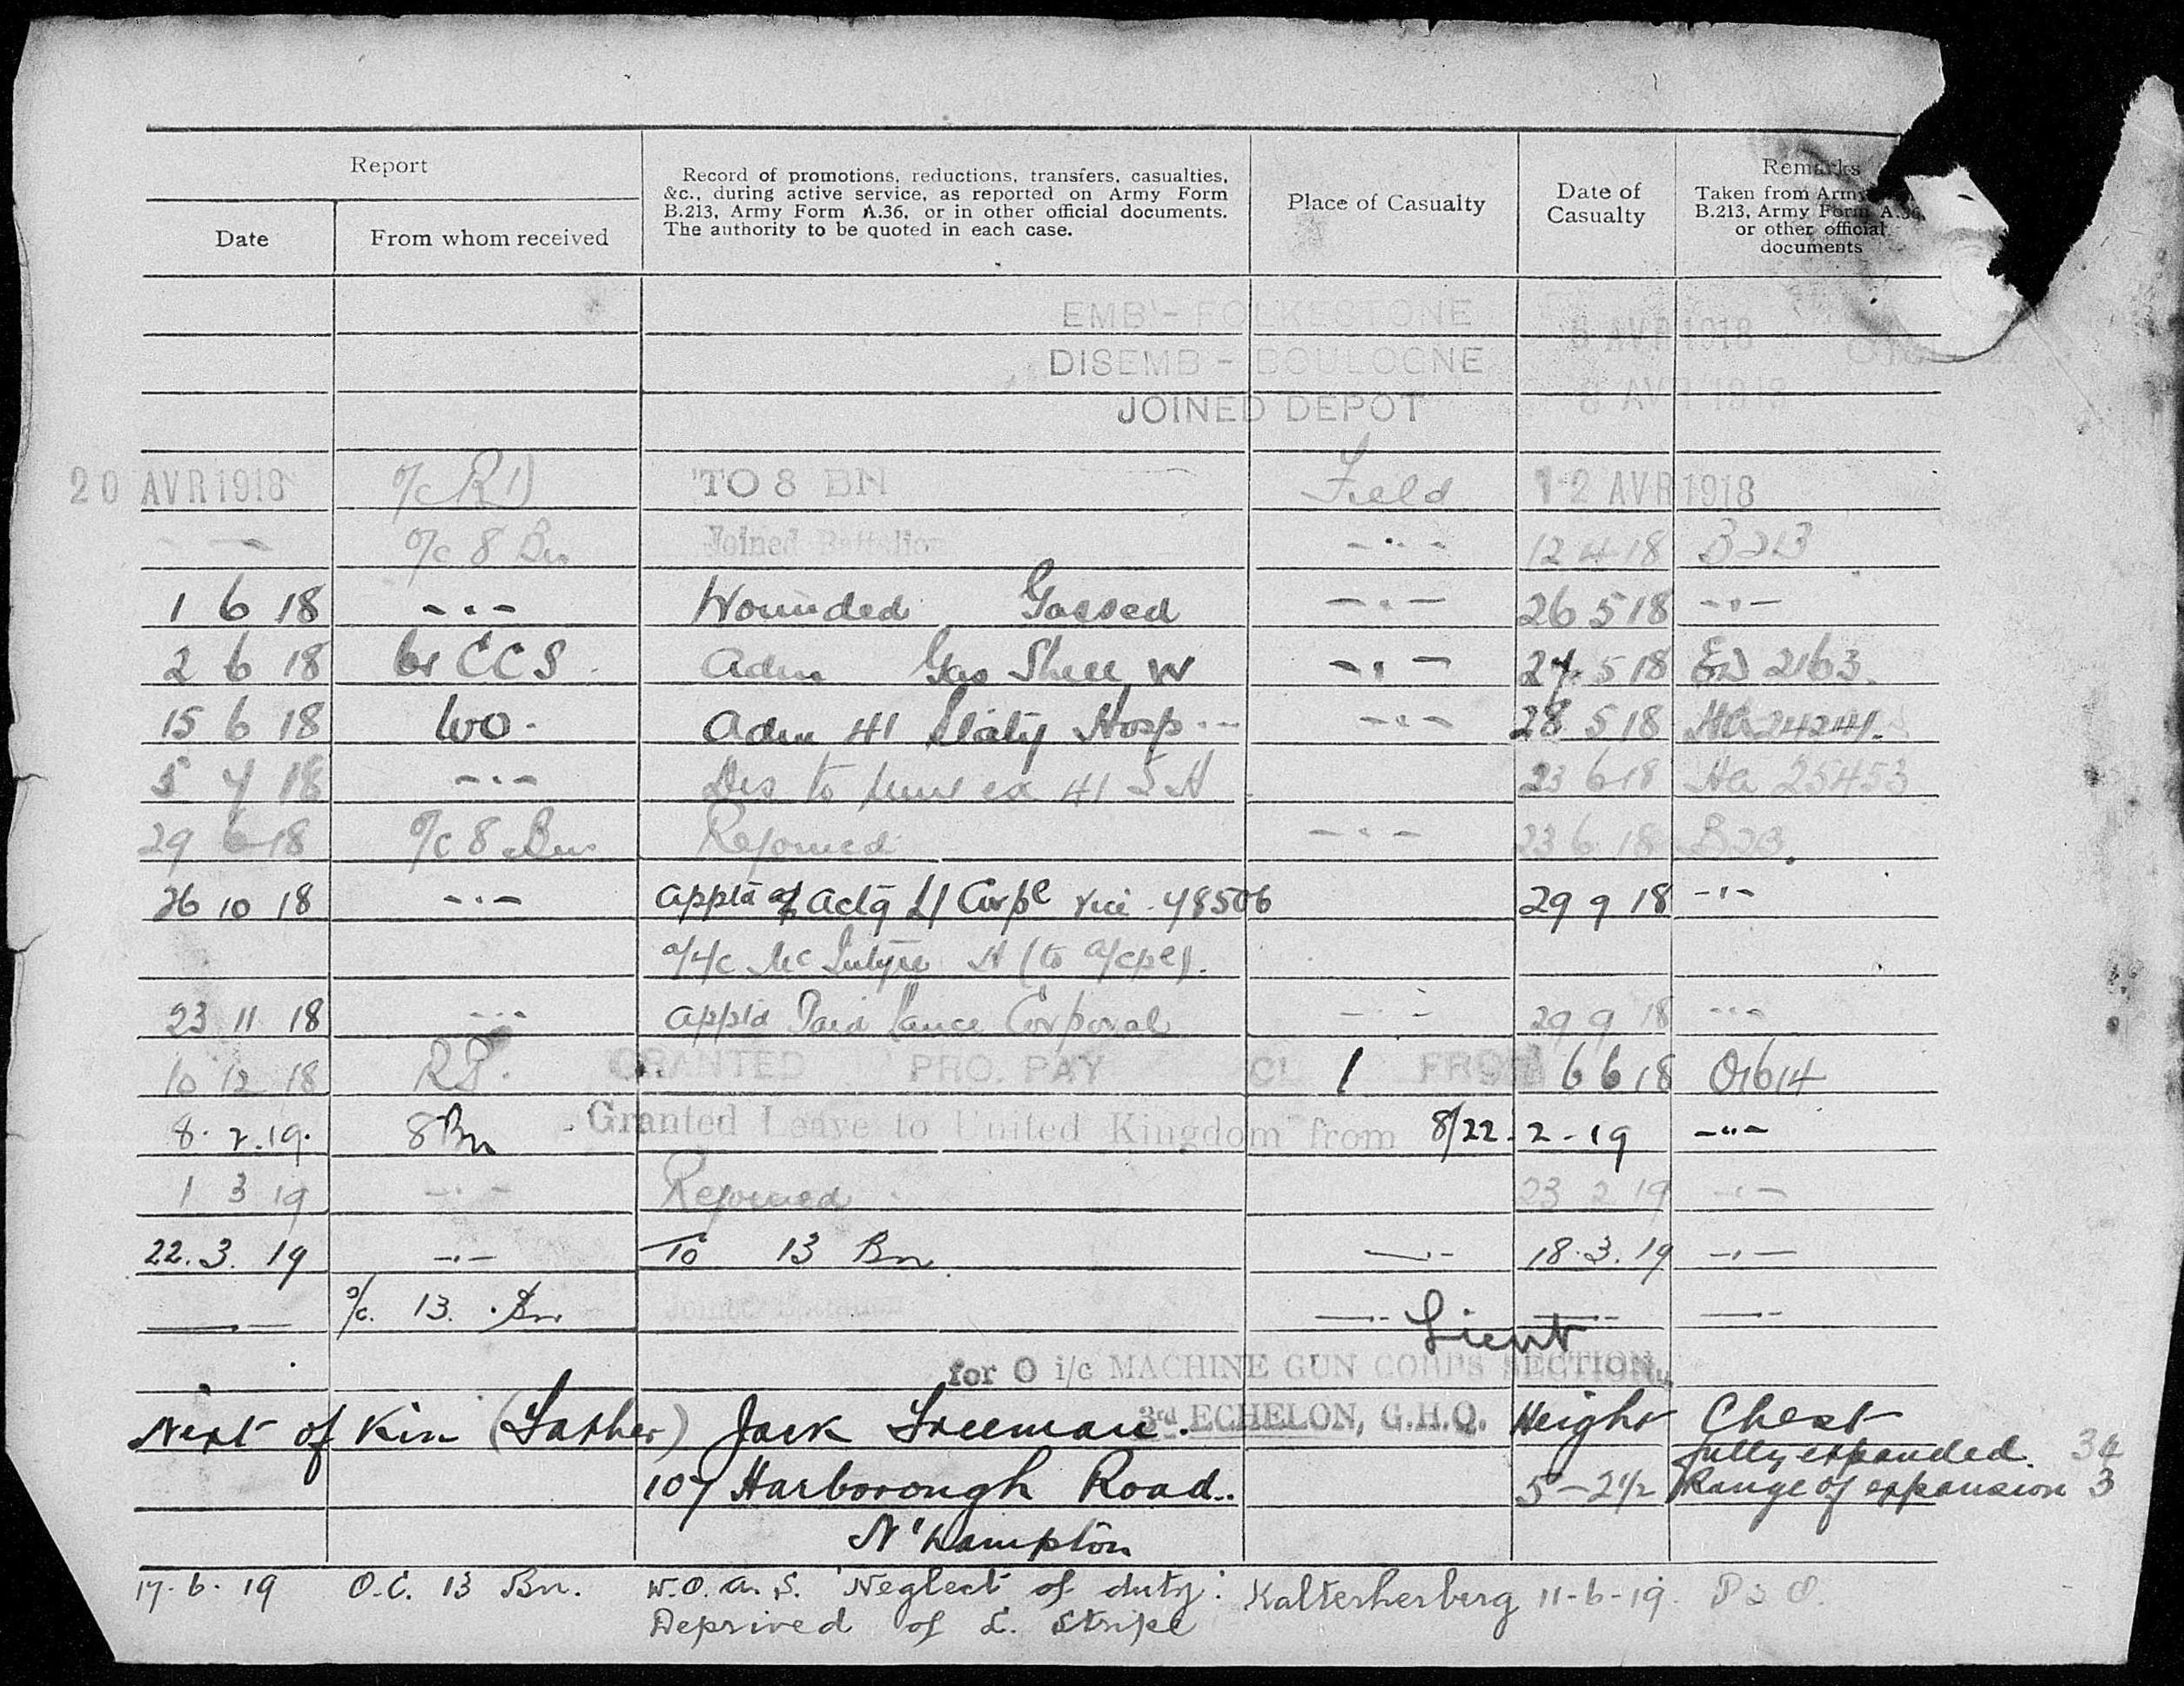 Report
Date
From whom received
Record of promotions, reductions, transfers, casualties,
&c., during active service, as reported on Army Form
B.213, Army Form A.36, or in other official documents.
The authority to be quoted in each case.
Place of Casualty
Date of
Casualty
Remarks
Taken from Army
B.213, Army Form A.36,
or other official
documents
EMB'- FOLKESTONE 8 AVR 1918
DISEMB - BOULOGNE
JOINED DEPOT 8 AVR 1918
20 AVR 1918 O/C RD TO 8 BN Field 12 AVR 1918
O/c 8 Bn Joined Battalion 12 4 18 B213
1 6 18 Wounded Gassed 26 5 18
2 6 18 CCS Adm Gas Shell W 27 5 18 2163
15 6 18 WO. Adm 41 Staty Hosp 28 5 18 Ha 24241
5 7 18 Dis to ex 41 S H 23 6 18 Ha 25453
29 6 18 O/c 8 Bn Rejoined 23 6 18 B213
26 10 18 Apptd Actg L/Corpl vice 78506 29 9 18
a/L/c McIntyre A (to a/cpl).
23 11 18 Apptd Paid Lance Corporal 29 9 18
10 12 18 GRANTED PRO. PAY CL 1 FROM 6 6 18 O1614
8. 2. 19. 8 Bn Granted Leave to United Kingdom from 8/22. 2 - 19
1 3 19 Rejoined 23 2 19
22. 3. 19 To 13 Bn 18. 3. 19
O/c. 13. Bn
Lieut
for O i/c MACHINE GUN CORPS SECTION,
3rd ECHELON, G.H.Q.
Next of Kin (Father) Jack Freeman. Height Chest
fully expanded. 34
107 Harborough Road. 5-2½ Range of expansion 3
N'hampton
17. 6. 19 O.C. 13 Bn. W.O.A.S. Neglect of duty. Kalterherberg 11-6-19.
Deprived of L. Stripe